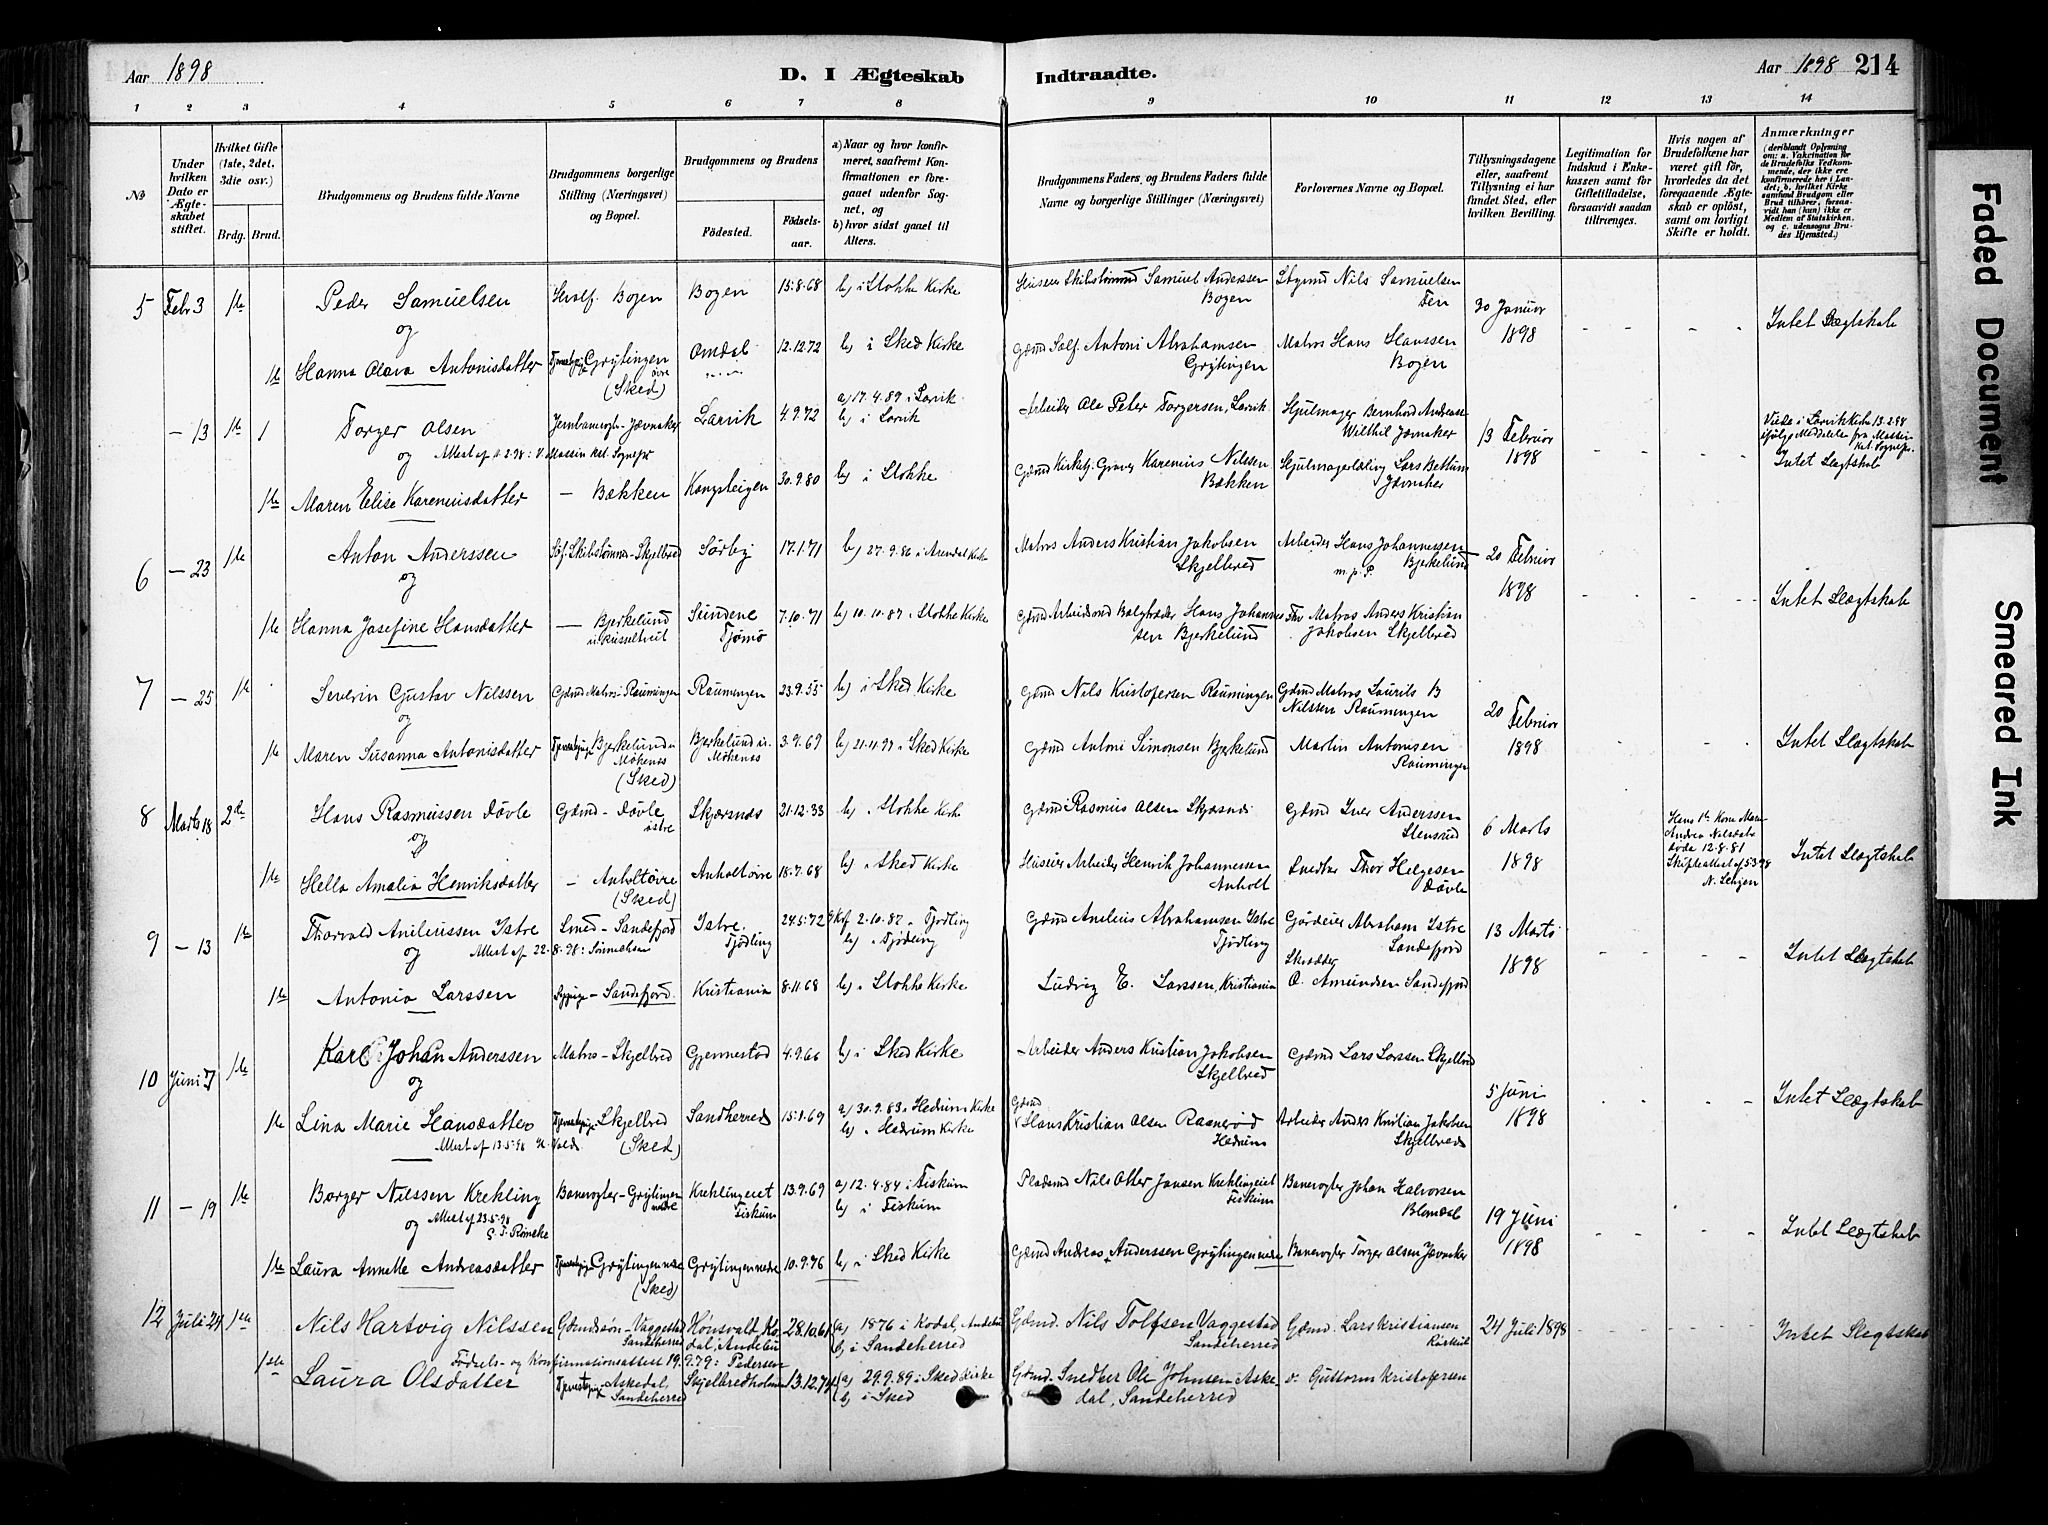 Aar 1898
D. I Ægteskab Indtraadte.
Aar 1898 214
1 2 3 4 5 6 7 8 9 10 11 12 13 14
No
Under hvilken Dato er Ægteskabet stiftet.
Hvilket Gifte (1ste, 2det, 3die osv.)
Brdg. Brud.
Brudgommens og Brudens fulde Navne
Brudgommens borgerlige Stilling (Næringsvei) og Bopæl.
Brudgommens og Brudens
Födested. Födselsaar.
a) Naar og hvor konfirmeret, saafremt Konfirmationen er foregaaet udenfor Sognet, og
b) hvor sidst gaaet til Alters.
Brudgommens Faders og Brudens Faders fulde Navne og borgerlige Stillinger (Næringsvei)
Forlovernes Navne og Bopæl.
Tillysningsdagene eller, saafremt Tillysning ei har fundet Sted, efter hvilken Bevilling.
Legitimation for Indskud i Enkekassen samt for Giftetilladelse, forsaavidt saadan tiltrænges.
Hvis nogen af Brudefolkene har været gift för, hvorledes da det foregaaende Ægteskab er oplöst, samt om lovligt Skifte er holdt.
Anmærkninger (deriblandt Oplysning om: a. Vakcination for de Brudefolks Vedkommende, der ikke ere konfirmerede her i Landet; b. hvilket Kirkesamfund Brudgom eller Brud tilhörer, forsaavidt han (hun) ikke er Medlem af Statskirken, og c. udensogns Brudes Hjemsted.)
5 Febr 3 1ste Peder Samuelsen Bogen Bogen 15.8.68 b) i Stokke Kirke Samuel Anderssen Bogen Nils Samuelsen Fen 30 Januar 1898 Intet Slægtskab
og
1ste Hanna Olava Antonisdatter Grÿtingen övre (Sked) Omdal 12.12.72 b) i Sked Kirke Gdmd Antoni Abrahamsen Grÿtingen Matros Hans Hanssen Bogen
- 13 1ste 1 Torger Olsen Jernbanevogter-Jævnaker Larvik 4.9.72 a) 17.4.87 i Larvik b) i Larvik Arbeider Ole Peter Torgersen, Larvik Hjulmager Bernhard Andreas Jævnaker 13 Februar 1898
og Attest af 11.2.98: Intet Slægtskab
1ste Maren Elise Kareniusdatter - Bækken 30.9.80 b) i Stokke Karenius Nilssen Bækken Lars Bettum Jævnaker
6 - 23 1ste Anton Anderssen Skjelbred Sörby 17.1.71 b) 27.9.86 i Arendal Kirke Matros Anders Kristian Jakobsen Skjelbred Arbeider Hans Johannessen Bjerkelund m.p.P. 20 Februar 1898 Intet Slægtskab
og
1ste Hanna Josefine Hansdatter - Bjerkelund Sundene Tjømø 7.10.71 b) 10.10.87 i Stokke Kirke Hans Johannessen Bjerkelund Matros Anders Kristian Jakobsen Skjelbred
7 - 25 1ste Severin Gustav Nilssen Gdmd Matros-Raumingen Raumingen 23.9.55 b) i Sked Kirke Gdmd Nils Kristofersen Raumingen Gdmd Matros Laurits B Nilssen Raumingen 20 Februar 1898 Intet Slægtskab
og
1ste Maren Susanna Antonisdatter Tjenestepige Bjerkelund u. Mökenæs (Sked) Bjerkelund u. Mökenæs 3.9.69 b) 21.11.97 i Sked Kirke Gdmd Antoni Simonsen Bjerkelund Martin Antonsen Raumingen
8 Marts 18 2de Hans Rasmussen Dövle Gdmd - Dövle östre Skjærsnæs 21.12.33 b) i Stokke Kirke Gdmd Rasmus Olsen Skjærsnæs Gdmd Iver Anderssen Stensrud 6 Marts 1898 Hans 1ste Kone Maren Andrea Nilsdatter döde 12.8.81 Skifteattest af 5.3.98 Intet Slægtskab
og
1ste Hella Amalia Henriksdatter - Anholt övre (Sked) Anholt övre 18.7.68 b) i Sked Kirke Arbeider Henrik Johannessen Anholt Snedker Thor Helgesen Dövle
9 - 13 1ste Thorvald Anileussen Istre Smed - Sandefjord Istre Tjödling 24.5.72 Kof 2.10.87 i Tjödling b) i Tjödling Gdmd Anileus Abrahamsen Istre Tjödling Gaardeier Abraham Istre Sandefjord 13 Marts 1898 Intet Slægtskab
og Attest af 22.8.98:
1ste Antonia Larssen Sypige - Sandefjord Kristiania 8.11.68 b) i Stokke Kirke Ludvig E. Larssen, Kristiania Skrædder O. Amundsen Sandefjord
10 Juni 7 1ste Karl Johan Anderssen Matros - Skjelbred Gjennestad 4.9.66 b) i Sked Kirke Arbeider Anders Kristian Jakobsen Skjelbred Gdmd Lars Larssen Skjelbred 5 Juni 1898 Intet Slægtskab
og
1ste Lina Marie Hansdatter Tjenestepige Skjelbred (Sked) Sandherred 15.1.69 a) 30.9.83 i Hedrum Kirke b) i Hedrum Kirke Gdmd Hans Kristian Olsen Raanerød Hedrum Arbeider Anders Kristian Jakobsen Skjelbred
Attest af 13.5.98
11 - 19 1ste Borger Nilssen Krekling Banevogter-Grÿtingen nedre Kreklingeiet Fiskum 13.9.69 a) 12.4.84 i Fiskum b) i Fiskum Pladsmd Nils Otter Jansen Kreklingeiet Fiskum Banevogter Johan Halvorsen Blomdal 19 Juni 1898 Intet Slægtskab
og Attest af 23.5.98
1ste Laura Annette Andreasdatter Tjenestepige Grÿtingen nedre (Sked) Grÿtingen nedre 10.9.76 b) i Sked Kirke Gdmd Andreas Anderssen Grÿtingen nedre Banevogter Torger Olsen Jævnaker
12 Juli 24 1ste Nils Hartvig Nilssen Gdmdssön - Vaggestad Sandeherred Hönsvald, Kodal, Andebu 28.10.61 a) 1876 i Kodal, Andebu b) i Sandeherred Gdmd. Nils Tolfsen Vaggestad Sandeherred Gdmd. Lars Kristiansen 24 Juli 1898 Intet Slegtskab
Födsels- og Konfirmationsattest 19.9.79: Pedersen
1ste Laura Olsdatter Tjenestepige Askedal, Sandeherred Skjelbredholmen 13.12.74 a) 29.9.89 i Sked Kirke b) i Sked Gdmd. Snedker Ole Johnsen Askedal, Sandeherred Guttorm Kristofersen
Faded Document
Smeared Ink